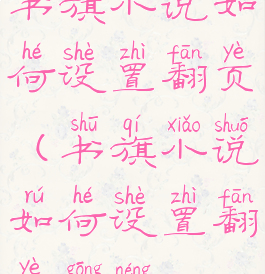 书旗小说如
hé shè zhì fān yè
何设置翻页
shū qí xiǎo shuō
（书旗小说
rú hé shè zhì fān
如何设置翻
yè gōng néng